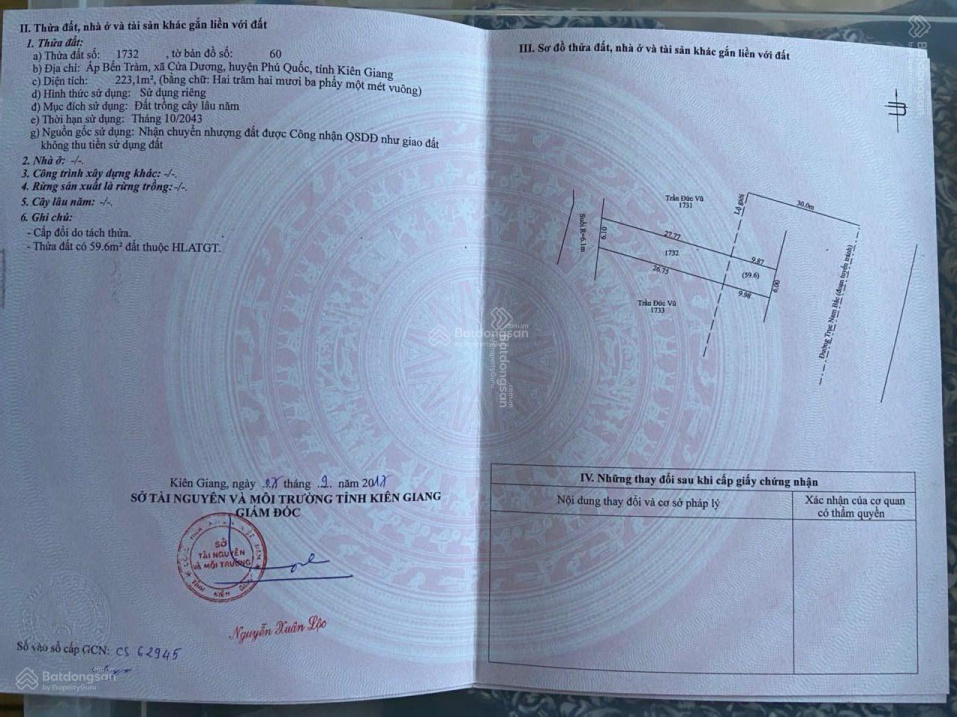 II. Thửa đất, nhà ở và tài sản khác gắn liền với đất
1. Thửa đất:
a) Thửa đất số: 1732 , tờ bản đồ số: 60
b) Địa chỉ: Ấp Bến Tràm, xã Cửa Dương, huyện Phú Quốc, tỉnh Kiên Giang
c) Diện tích: 223,1m², (bằng chữ: Hai trăm hai mươi ba phẩy một mét vuông)
d) Hình thức sử dụng: Sử dụng riêng
đ) Mục đích sử dụng: Đất trồng cây lâu năm
e) Thời hạn sử dụng: Tháng 10/2043
g) Nguồn gốc sử dụng: Nhận chuyển nhượng đất được Công nhận QSDĐ như giao đất
không thu tiền sử dụng đất
2. Nhà ở: -/-.
3. Công trình xây dựng khác: -/-.
4. Rừng sản xuất là rừng trồng: -/-.
5. Cây lâu năm: -/-.
6. Ghi chú:
- Cấp đổi do tách thửa.
- Thửa đất có 59.6m² đất thuộc HLATGT.
Kiên Giang, ngày tháng 9 năm 2017
SỞ TÀI NGUYÊN VÀ MÔI TRƯỜNG TỈNH KIÊN GIANG
GIÁM ĐỐC
SỞ
TÀI NGUYÊN
VÀ MÔI TRƯỜNG
TỈNH KIÊN GIANG
Nguyễn Xuân Lộc
Số vào sổ cấp GCN: CS 62945
Batdongsan
by PropertyGuru
III. Sơ đồ thửa đất, nhà ở và tài sản khác gắn liền với đất
Trần Đức Vũ
1731
Lộ giới
30.0m
Suối R=6.1m
6.10
27.77
1732
9.87
(59.6)
26.73
9.98
6.00
Trần Đức Vũ
1733
Đường Trục Nam Bắc (đoạn tuyến tránh)
Batdongsan
Batdongsan
IV. Những thay đổi sau khi cấp giấy chứng nhận
Nội dung thay đổi và cơ sở pháp lý
Xác nhận của cơ quan
có thẩm quyền
Batdongsan
by PropertyGuru